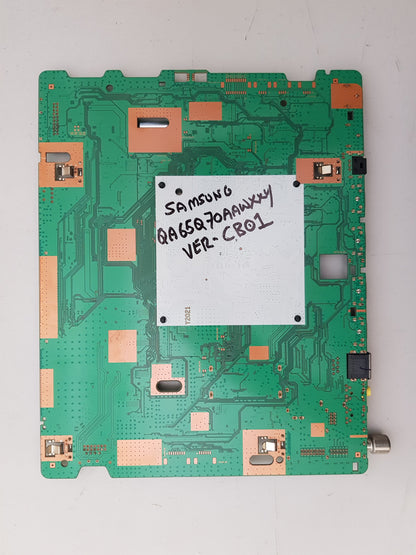 SAMSUNG
QA65Q70AAWXXY
VER-CB01
Y2021